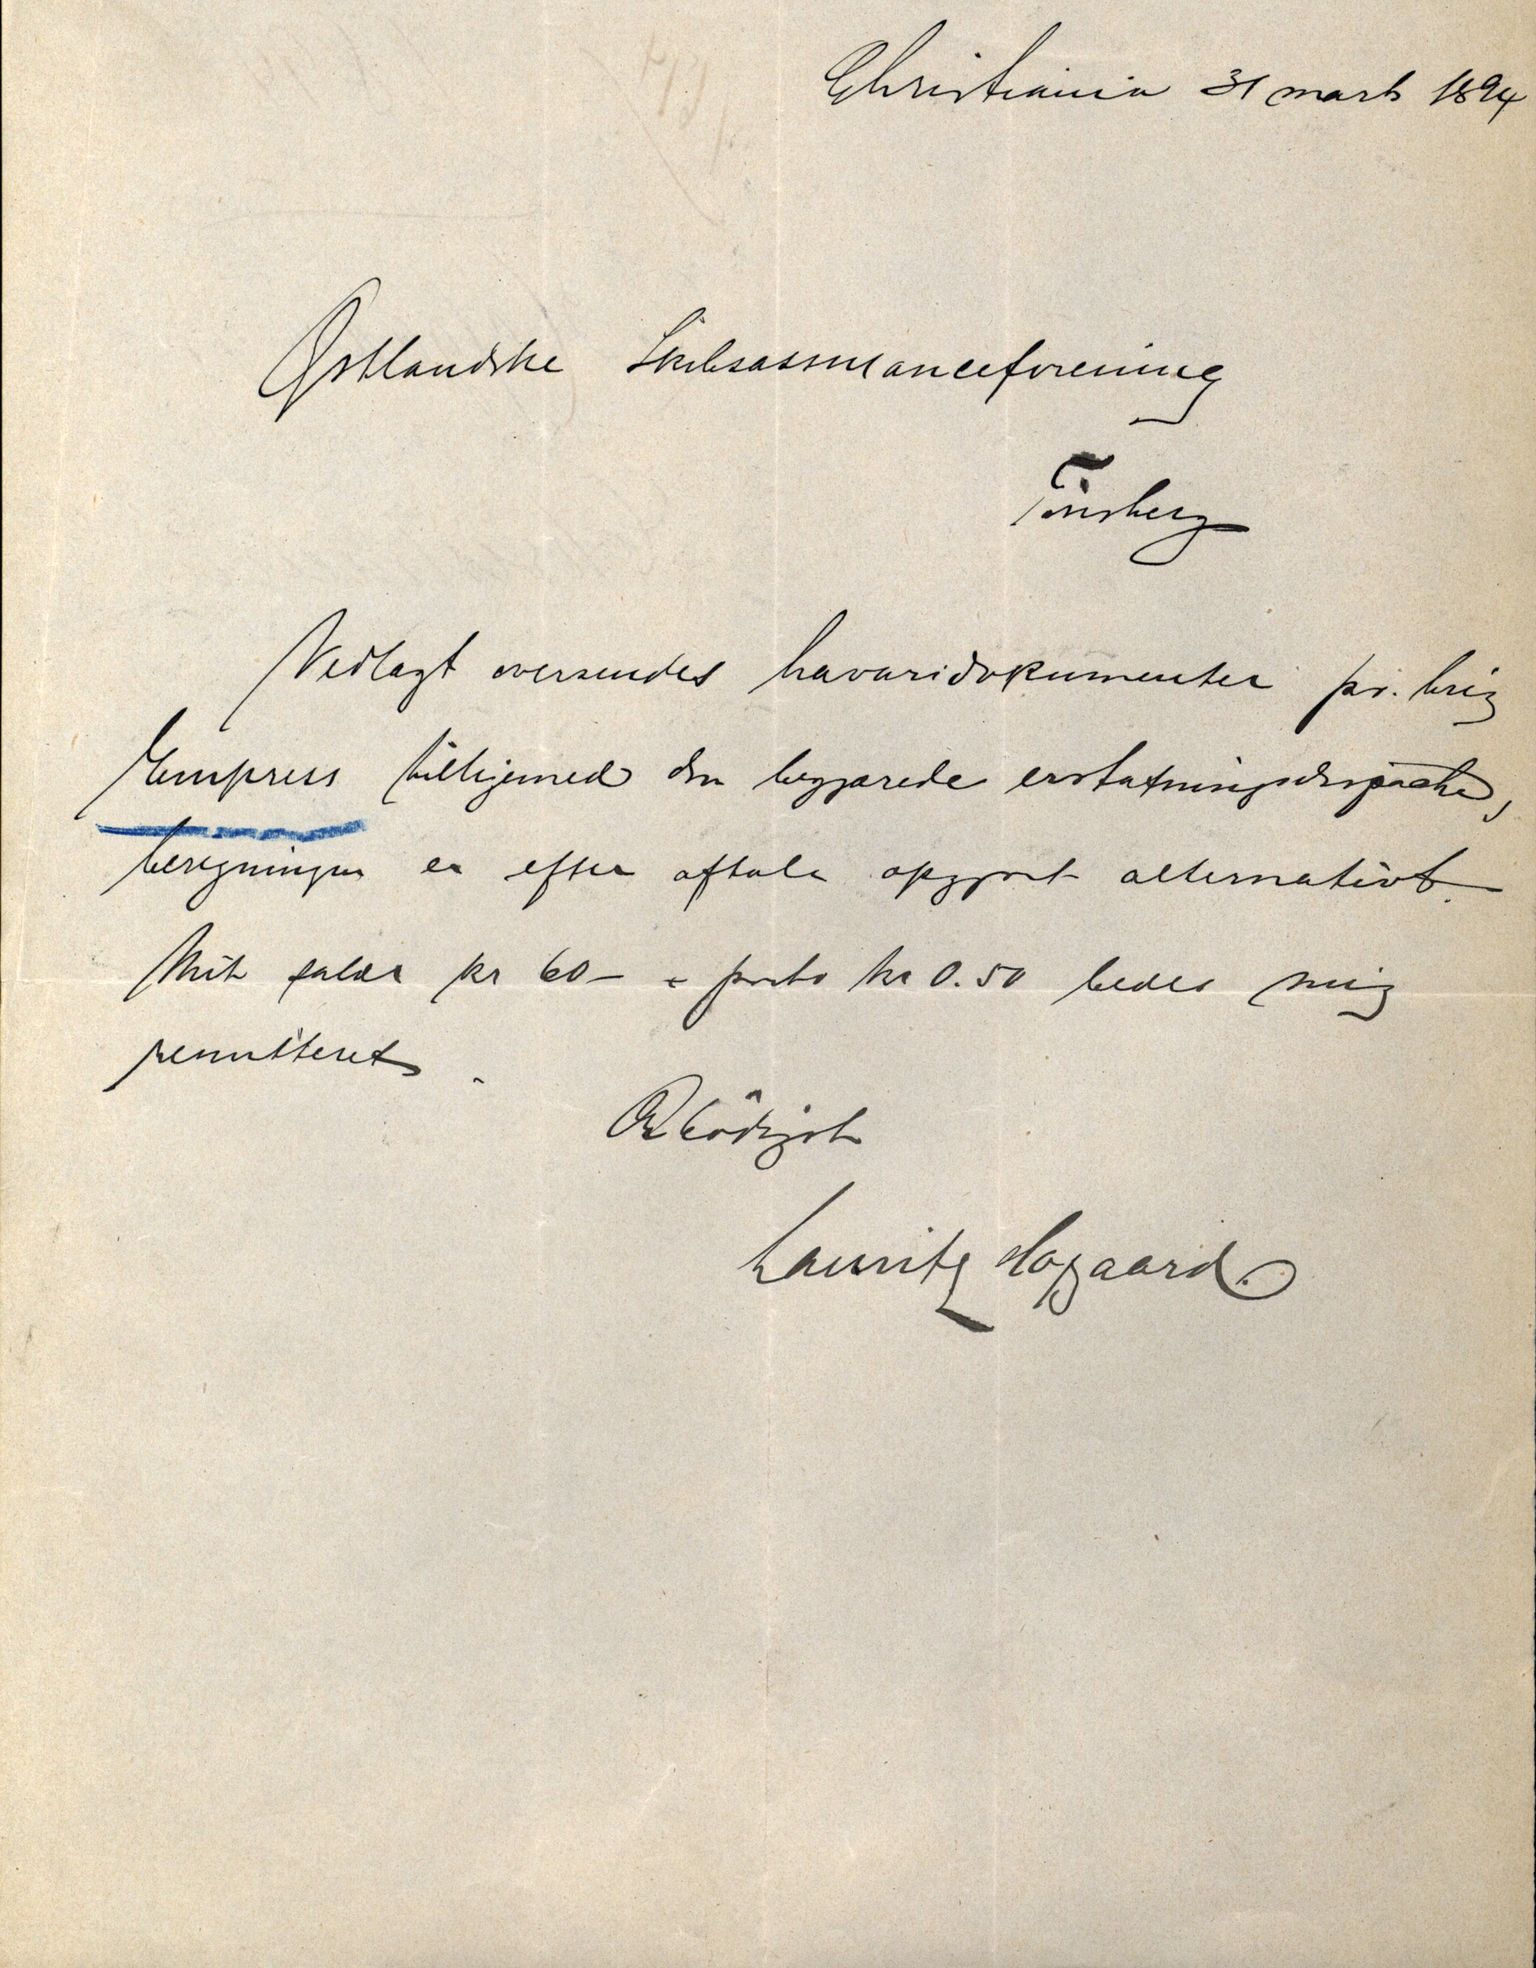 Christiania 31 marts 1894
Østlandske Skibsassuranceforening
Tönsberg
Vedlagt oversendes havaridokumenter pr. brig
Empress tilligemed den begjærede erstatningsdispache,
beregningen er efter aftale opgjort alternativt.
Mit salær kr 60 – + porto kr 0.50 bedes mig
remitteret.
Ærbödigst
Lauritz Aagaard.